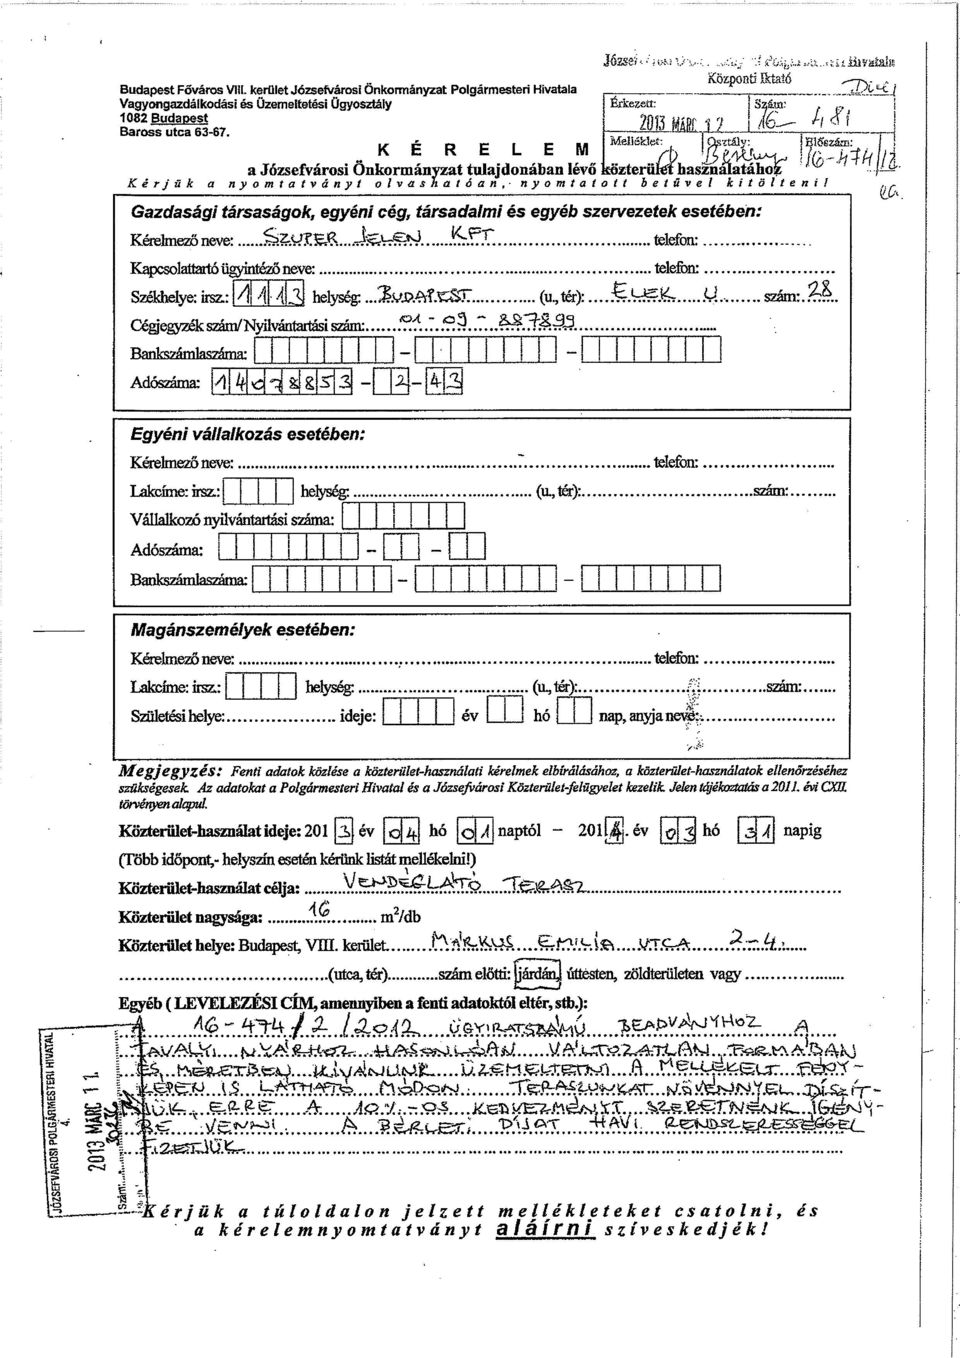 Budapest Főváros VIII. kerület Józsefvárosi Önkormányzat Polgármesteri Hivatala
Vagyongazdálkodási és Üzemeltetési Ügyosztály
1082 Budapest
Baross utca 63-67.
Központi Iktató
Érkezett: 2013 MÁRC 12 Szám: 16- 481
Melléklet: Osztály: Előszám: 16-474/12
K É R E L E M
a Józsefvárosi Önkormányzat tulajdonában lévő közterület használatához
Kérjük a nyomtatványt olvashatóan, nyomtatott betűvel kitölteni!
Gazdasági társaságok, egyéni cég, társadalmi és egyéb szervezetek esetében:
Kérelmező neve: SZUPER JELEN KFT telefon:
Kapcsolattartó ügyintéző neve: telefon:
Székhelye: irsz.: 1113 helység: BUDAPEST (u., tér): ELEK U. szám: 28
Cégjegyzék szám/Nyilvántartási szám: 01 - 09 - 887899
Bankszámlaszáma: - -
Adószáma: 14078853 - 2 - 43
Egyéni vállalkozás esetében:
Kérelmező neve: telefon:
Lakcíme: irsz.: helység: (u., tér): szám:
Vállalkozó nyilvántartási száma:
Adószáma: - -
Bankszámlaszáma: - -
Magánszemélyek esetében:
Kérelmező neve: telefon:
Lakcíme: irsz.: helység: (u., tér): szám:
Születési helye: ideje: év hó nap, anyja neve:
Megjegyzés: Fenti adatok közlése a közterület-használati kérelmek elbírálásához, a közterület-használatok ellenőrzéséhez
szükségesek. Az adatokat a Polgármesteri Hivatal és a Józsefvárosi Közterület-felügyelet kezelik. Jelen tájékoztatás a 2011. évi CXII.
törvényen alapul.
Közterület-használat ideje: 201 3 év 04 hó 01 naptól - 201 4. év 03 hó 31 napig
(Több időpont,- helyszín esetén kérünk listát mellékelni!)
Közterület-használat célja: VENDÉGLÁTÓ TERASZ
Közterület nagysága: 16 m²/db
Közterület helye: Budapest, VIII. kerület MÁRKUS EMILIA UTCA 2-4.
(utca, tér) szám előtti: járdán, úttesten, zöldterületen vagy
Egyéb ( LEVELEZÉSI CÍM, amennyiben a fenti adatoktól eltér, stb.):
A 16-474/2/2012 ÜGYIRATSZÁMÚ BEADVÁNYHOZ A
TAVALYI NYÁRHOZ HASONLÓAN VÁLTOZATLAN FORMÁBAN
ÉS MÉRETBEN KIVÁNUNK ÜZEMELTETNI. A MELLÉKELT FÉNY-
KÉPEN IS LÁTHATÓ MÓDON TERASZUNKAT NÖVÉNNYEL DÍSZÍT-
JÜK, ERRE A 10%-OS KEDVEZMÉNYT SZERETNÉNK IGÉNY-
BE VENNI. A BÉRLETI DIJAT HAVI RENDSZERESSÉGGEL
FIZETJÜK
JÓZSEFVÁROSI POLGÁRMESTERI HIVATAL
4.
2013 MÁRC 11.
Szám:
Kérjük a túloldalon jelzett mellékleteket csatolni, és
a kérelemnyomtatványt aláírni szíveskedjék!